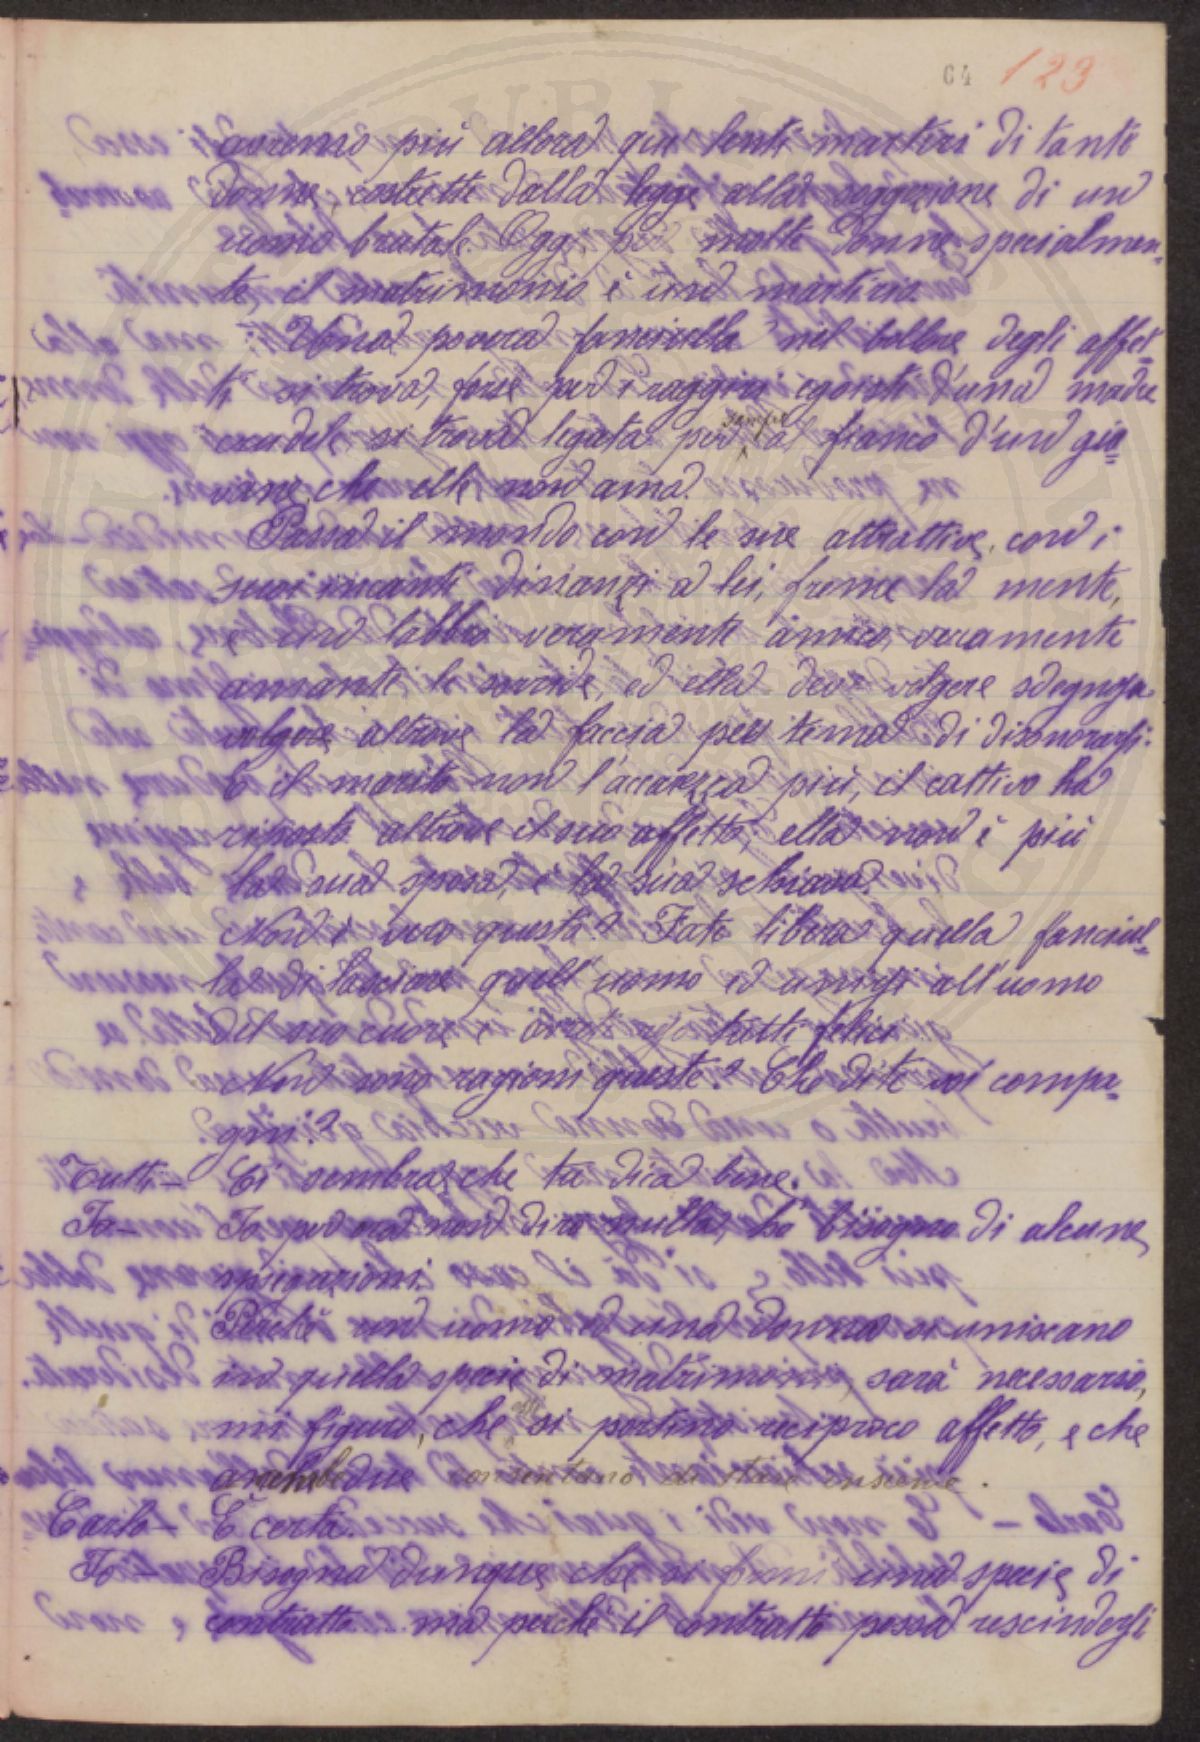 64 123
avremo più allora quei lenti martiri di tante
donne, costrette dalla legge alla soggezione di un
uomo brutale. Oggi per molte donne specialmen-
te, il matrimonio è un martirio.
Una povera fanciulla nel bollore degli affet-
ti si trova, forse per i raggiri egoisti d'una madre
crudele, si trova legata per sempre a fianco d'un gio-
vane che ella non ama.
Passa il mondo con le sue attrattive, con i
suoi incanti dinanzi a lei, freme la mente,
e un labbro veramente amico, veramente
amante, le sorride, ed ella deve volgere sdegnosa
volgere altrove la faccia per tema di disonorarsi.
E il marito non l'accarezza più, il cattivo ha
riposto altrove il suo affetto; ella non è più
la sua sposa, è la sua schiava.
Non è vero questo? Fate libera quella fanciul-
la di lasciare quell'uomo ed unirsi all'uomo
del suo cuore, e tutti felici.
Non sono ragioni queste? Che dite voi compa-
gni?
Tutti - Ci sembra che tu dica bene.
Io - Io per ora non dirò nulla, ho bisogno di alcune
spiegazioni.
Perché un uomo ed una donna si uniscano
in quella specie di matrimonio, sarà necessario,
mi figuro, che si portino reciproco affetto, e che
ambedue consentano di stare insieme.
Carlo - È certo.
Io - Bisogna dunque che si firmi una specie di
contratto... ma perché il contratto possa rescindersi